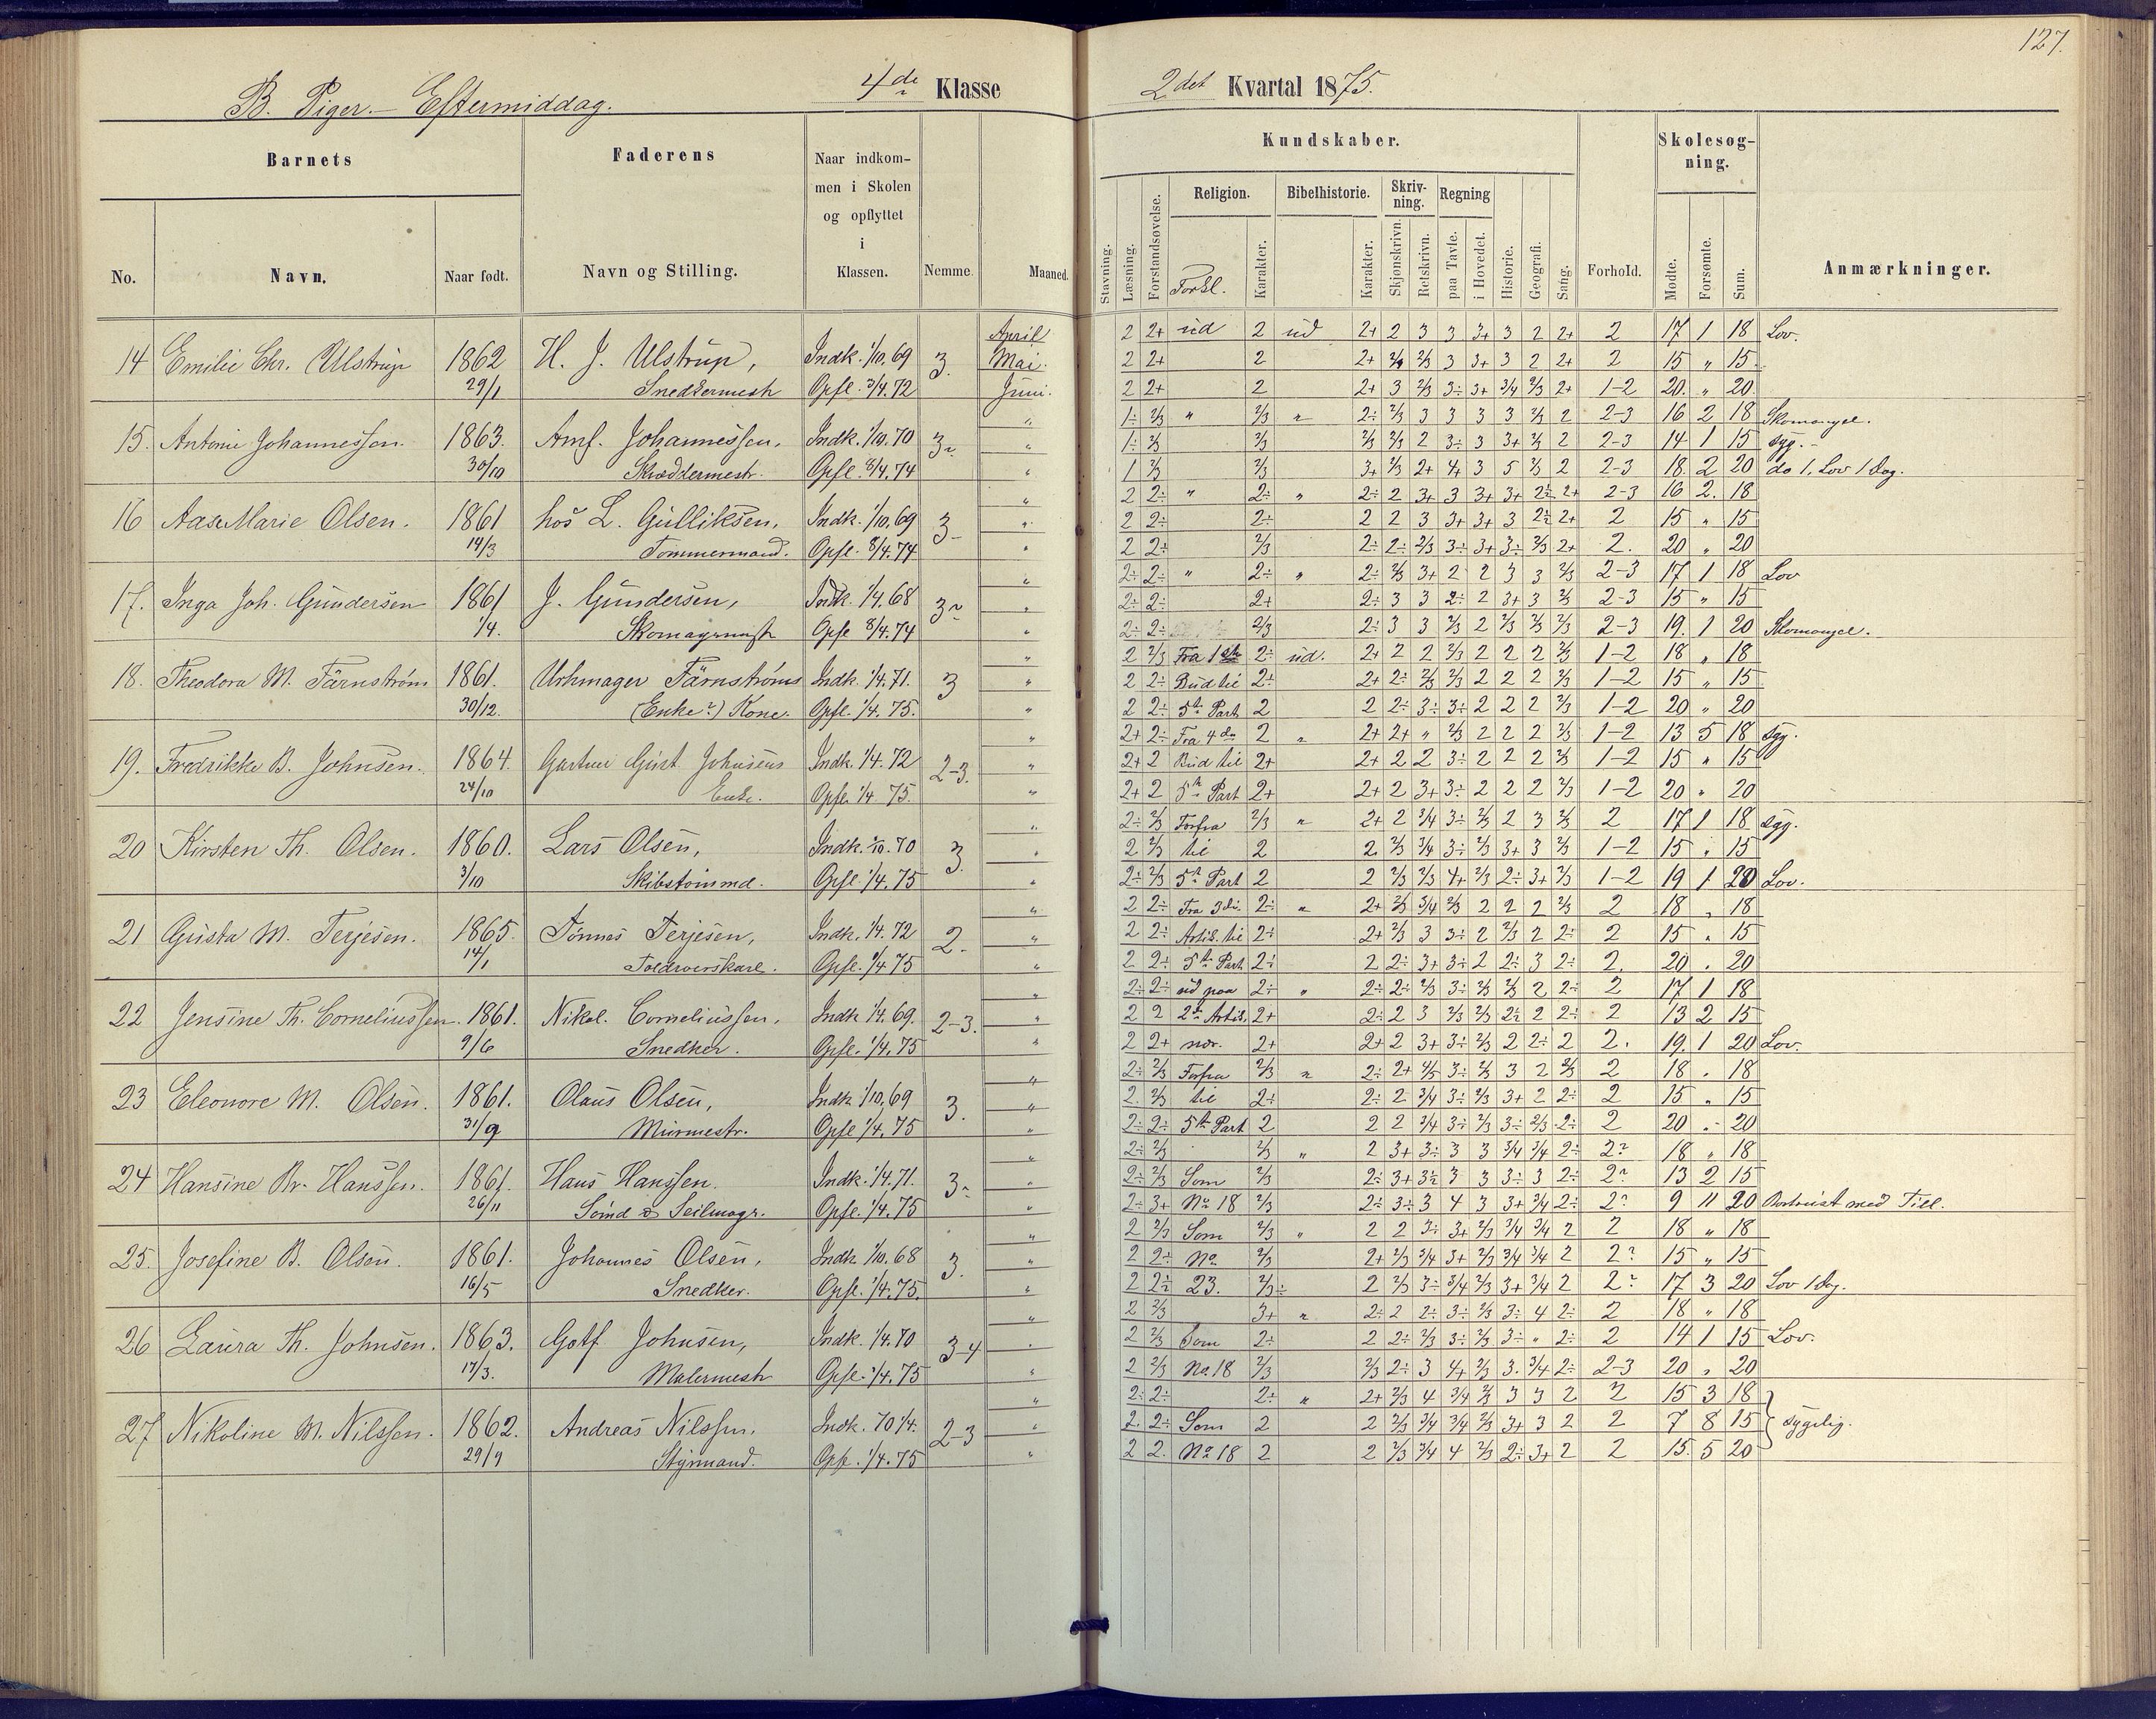 127.
B. Piger. – Eftermiddag.
4de Klasse
2det Kvartal 1875.
Barnets
Faderens
Naar indkommen i Skolen og opflyttet i Klassen.
Nemme.
Maaned.
No.
Navn.
Naar født.
Navn og Stilling.
Kundskaber.
Stavning.
Læsning.
Forstandsøvelse.
Religion.
Forkl.
Karakter.
Bibelhistorie.
Karakter.
Skrivning.
Skjønskrivn.
Retskrivn.
Regning
paa Tavle.
i Hovedet.
Historie.
Geografi.
Sang.
Forhold.
Skolesøgning.
Mødte.
Forsømte.
Sum.
Anmærkninger.
14 Emilie Chr. Ulstrup 1862 29/1 H. J. Ulstrup, Snedkermestr Indk. 1/10.69 Opfl. 3/4.72 3.
April 2 2+ ud 2 ud 2+ 2 3 3 3+ 3 2 2+ 2 17 1 18 Lov.
Mai 2 2+ 2 2+ 2/3 3 3+ 3 2 2+ 2 15 " 15
Juni. 2 2+ 2 2+ 3 2/3 3÷ 3+ 3/4 2/3 2+ 1-2 20. " 20
15. Antonie Johannessen. 1863. 30/10 Amf. Johannessen, Skræddermestr. Indk. 1/10.70 Opfl. 8/4.74
1÷ 2/3 " 2/3 " 2÷ 2/3 3 3 3 3 2/3 2 2-3 16 2 18 Skomangel.
1÷ 2/3 2/3 2/3 2/3 2 3÷ 3 3+ 2/3 2 2-3 14 1 15 syg.
1 2/3 2/3 3+ 2/3 2+ 4+ 3 5 2/3 2 2-3 18. 2 20 do 1, Lov 1 Dag.
16 Aase Marie Olsen. 1861 14/3 hos L. Gulliksen, Tømmermand. Indk. 1/10.69 Opfl. 8/4.74 3-
2 2÷ " 2÷ " 2÷ 2 3+ 3 3+ 3+ 2÷ 2+ 2-3 16 2. 18
2 2÷ 2÷ 2 2 3 3+ 3+ 3 2÷ 2+ 2 15 " 15
2 2÷ 2/3 2÷ 2÷ 2/3 3÷ 3+ 3÷ 2/3 2+ 2. 20 " 20
17. Inga Joh. Gundersen 1861 1/4. J. Gundersen, Skomagermestr Indk. 1/4.68 Opfl. 8/4.74
2÷ 2÷ " 2÷ " 2÷ 2/3 3+ 2 2 3 3 2/3 2-3 17 1 18 Lov
2÷ 2÷ 2+ 2÷ 3 3 2÷ 2 3+ 3 2/3 2-3 15 " 15
2÷ 2÷ 2/3 2÷ 3 3 2/3 2 2/3 2/3 2/3 2-3 19. 1 20 Skomangel.
18. Theodora M. Färnstrøm 1861. 30/12. Urhmager Färnstrøms (Enke?) Kone. Indk. 1/4.71. Opfl. 1/4.75. 3
2 2/3 Fra 1ste 2÷ ud. 2+ 2 2 2/3 2 2 2 2/3 1-2 18 " 18
2 2÷ Bud til 2÷ 2+ 2÷ 2/3 2/3 2 2 2 2/3 1-2 15 " 15
2 2÷ 5te Part 2 2 2÷ 3÷ 3÷ 2 2 2 2/3 1-2 20 " 20
19. Fredrikke B. Johnsen. 1864. 24/10 Gartner Gust Johnsens Enke. Indk. 1/4.72 Opfl. 1/4 75. 2-3.
2+ 2÷ Fra 4de 2 " 2+ 2+ " 2/3 2 2 2 2/3 1-2 13 5 18 syg.
2+ 2 Bud til 2+ 2+ 2 2 3÷ 2 2 2 2/3 1-2 15 " 15
2+ 2 5te Part 2+ 2+ 2 3+ 3÷ 2 2 2 2/3 1-2 20 " 20
20 Kirsten Th. Olsen. 1860. 3/10 Lars Olsen, Skibstømmd. Indk. 1/10.70 Opfl. 1/4.75 3.
2÷ 2/3 Forfra 2/3 " 2+ 2 3/4 3÷ 2/3 2 3 2/3 2 17 1 18 syg.
2 2/3 til 2 2 2/3 3/4 3÷ 2/3 3+ 3 2/3 1-2 15 " 15
2÷ 2/3 5te Part 2 2 2/3 2/3 4+ 2/3 2÷ 3+ 2/3 1-2 19 1 20 Lov.
21 Gusta M. Terjesen. 1865. 14/1 Tönnes Terjesen, Indk. 1/4.72 Opfl. 1/4 75 2.
2 2÷ Fra 3die 2÷ " 2+ 2/3 3/4 2/3 2 2 2 2/3 2 18 " 18
2 2÷ Artik. til 2÷ 2+ 2/3 3 3÷ 2 2/3 2 2÷ 2 15 " 15
2 2÷ 5te Part 2÷ 2 2÷ 3+ 3÷ 2 2÷ 3 2÷ 2. 20 " 20
22 Jensine Th. Corneliussen. 1861. 9/6 Nikol. Corneliussen, Snedker. Indk 1/4.69. Opfl. 1/4.75 2-3.
2÷ 2÷ ud paa 2÷ " 2÷ 2÷ 2/3 3÷ 2/3 2/3 2 2÷ 2 17 1 18
2 2 2den Artik. 2+ 2÷ 2 3 2/3 2/3 2÷ 2 2÷ 2 13 2 15
2 2+ nær. 2+ 2+ 2 3+ 3÷ 2/3 2 2÷ 2 2. 19. 1 20 Lov.
23 Eleonore M. Olsen. 1861. 31/9 Olaus Olsen, Murmestr. Indk 1/10.69 Opfl 1/4.75 3.
2÷ 2/3 Forfra 2/3 " 2÷ 2+ 4/5 3÷ 2/3 3 2 2/3 2 18 " 18
2. 2/3 til 2÷ 2÷ 2 3/4 3÷ 2/3 3+ 2 2÷ 2 15 " 15
2÷ 2÷ 5te Part 2 2 2 3/4 3÷ 2/3 3÷ 2/3 2÷ 2 20 " 20
24 Hansine Br. Hanssen. 1861. 26/11 Hans Hanssen. Sømd & Seilmagr. Indk. 1/4.71. Opfl. 1/4.75
2÷ 2/3 2/3 " 2 3+ 3÷ 3 3 3/4 3/4 2÷ 2? 18 " 18
2÷ 2/3 Som 2/3 2÷ 3+ 3÷ 3 3 3÷ 3 2÷ 2? 13 2 15
2÷ 3+ No 18 2/3 2÷ 3÷ 3 4 3 3+ 3/4 2÷ 2? 9 11 20 Bortreist med Till.
25. Josefine B. Olsen. 1861. 16/5 Johannes Olsen, Snedker. Indk 1/10.68 Opfl. 1/4.75. 3.
2 2/3 Som 2/3 " 2 2 3÷ 3+ 2/3 3/4 3/4 2 2 18 " 18
2 2÷ No 2/3 2+ 2/3 3/4 3+ 2/3 3/4 3/4 2 2? 15 " 15
2 2÷ 23. 2/3÷ 2 2/3 3÷ 3/4 2/3 3+ 3/4 2 2? 17 3 20 Lov 1 Dag.
26 Laura Th. Johnsen. 1863. 17/3. Gotf Johnsen, Malermestr Indk. 1/4.70 Opfl. 1/4.75 3-4
2 2/3 3+ " 2÷ 2 2÷ 3÷ 2/3 3÷ 4 2÷ 2 18 " 18
2 2/3 Som 2÷ 2 2÷ 2/3 3÷ 2/3 3÷ " 2÷ 2 14 1 15 Lov.
2 2/3 No 18 2/3 2/3 2÷ 3 4+ 2/3 3. 3/4 2÷ 2-3 20 " 20
27 Nikoline M. Nilssen. 1862. 29/9 Andreas Nilssen. Styrmand. Indk. 70 1/4. Opfl. 1/4.75 2-3
2÷ 2÷ 2÷ " 2+ 2/3 4 3/4 2/3 3 3 2 2 15 3 18
2. 2÷ Som 2 2 2/3 3/4 3/4 2/3 3+ 3 2 2 7 8 15 sygelig.
2 2. No 18 2 2 2/3 3/4 4 2/3 2÷ 3+ 2 2 15. 5 20